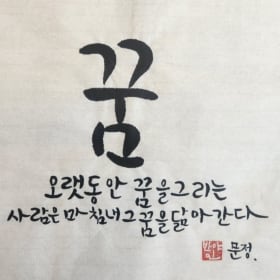 꿈
오랫동안 꿈을 그리는
사람은 마침내 그 꿈을 닮아 간다
문정.